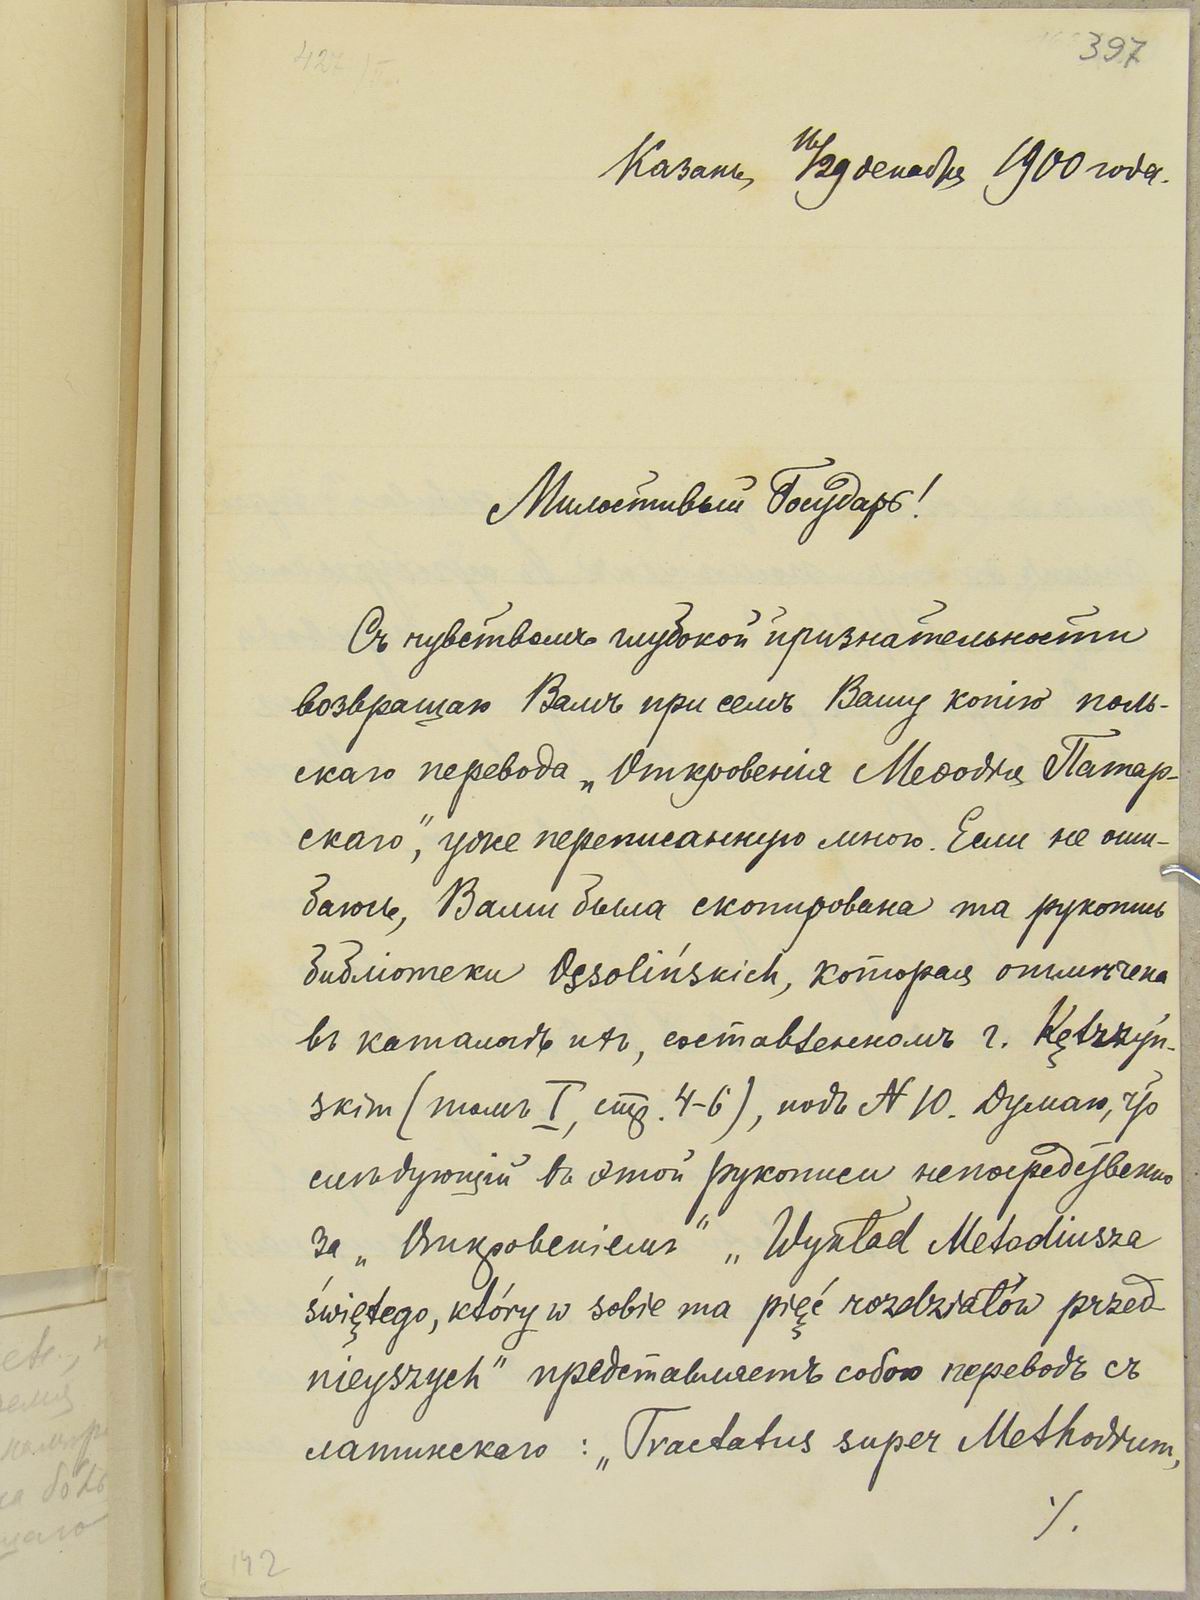 397
Казань, 16/29 декабря 1900 года.
Милостивый Государь!
Съ чувствомъ глубокой признательности
возвращаю Вамъ при семъ Вашу копію поль-
скаго перевода „Откровенія Меѳодія Патар-
скаго", уже переписанную мною. Если не оши-
баюсь, Вами была скопирована та рукопись
библіотеки Ossolińskich, которая отмѣчена
въ каталогѣ ихъ, составленномъ г. Kętrzyń-
skim (томъ I, стр. 4-6), подъ № 10. Думаю, что
слѣдующій въ этой рукописи непосредственно
за „Откровеніемъ" „Wykład Metodiusza
świętego, który w sobie ma pięć rozdziałów przed-
nieyszych" представляетъ собою переводъ съ
латинскаго: „Tractatus super Methodium,
./.
142